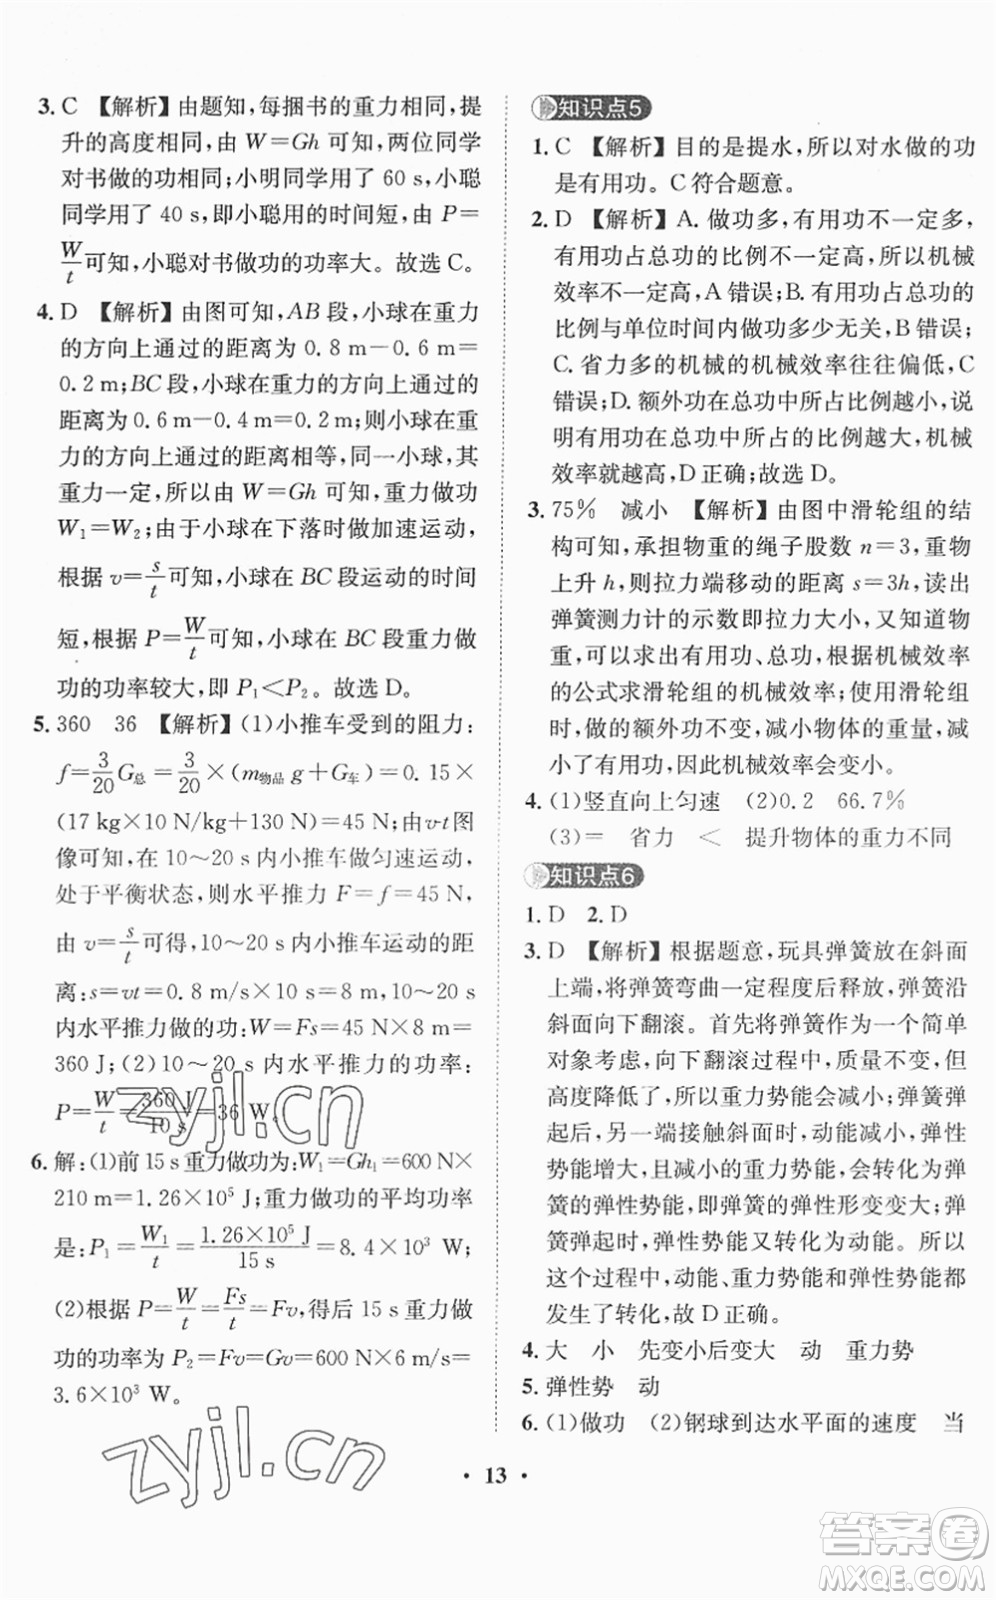 3. C 【解析】由题知,每捆书的重力相同,提
升的高度相同,由 W=Gh 可知,两位同学
对书做的功相同;小明同学用了 60 s,小聪
同学用了 40 s,即小聪用的时间短,由 P=
W/t可知,小聪对书做功的功率大。故选 C。
4. D 【解析】由图可知,AB 段,小球在重力
的方向上通过的距离为 0.8 m-0.6 m=
0.2 m;BC 段,小球在重力的方向上通过的
距离为 0.6 m-0.4 m=0.2 m;则小球在重
力的方向上通过的距离相等,同一小球,重
力一定,所以由 W=Gh 可知,重力做功
W₁=W₂;由于小球在下落时做加速运动,
根据 v=s/t可知,小球在 BC 段运动的时间
短,根据 P=W/t可知,小球在 BC 段重力做
功的功率较大,即 P₁<P₂。故选 D。
5. 360 36 【解析】(1)小推车受到的阻力:
f=3/20G总=3/20×(m物品 g+G车)=0.15×
(17 kg×10 N/kg+130 N)=45 N;由v-t图
像可知,在 10~20 s内小推车做匀速运动,
处于平衡状态,则水平推力 F=f=45 N,
由 v=s/t可得,10~20 s内小推车运动的距
离:s=vt=0.8 m/s×10 s=8 m,10~20 s
内水平推力做的功:W=Fs=45 N×8 m=
360 J;(2)10~20 s内水平推力的功率:
P=W/t=360 J/10 s=36 W。
6. 解:(1)前 15 s重力做功为:W₁=Gh₁=600 N×
210 m=1.26×10⁵ J;重力做功的平均功率
是:P₁=W₁/t=1.26×10⁵ J/15 s=8.4×10³ W;
(2)根据 P=W/t=Fs/t=Fv,得后 15 s重力做
功的功率为 P₂=Fv=Gv=600 N×6 m/s=
3.6×10³ W。
知识点5
1. C 【解析】目的是提水,所以对水做的功
是有用功。C符合题意。
2. D 【解析】A. 做功多,有用功不一定多,
有用功占总功的比例不一定高,所以机械
效率不一定高,A错误;B. 有用功占总功的
比例与单位时间内做功多少无关,B错误;
C. 省力多的机械的机械效率往往偏低,C
错误;D. 额外功在总功中所占比例越小,说
明有用功在总功中所占的比例越大,机械
效率就越高,D正确;故选 D。
3. 75% 减小 【解析】由图中滑轮组的结
构可知,承担物重的绳子股数 n=3,重物
上升 h,则拉力端移动的距离 s=3h,读出
弹簧测力计的示数即拉力大小,又知道物
重,可以求出有用功、总功,根据机械效率
的公式求滑轮组的机械效率;使用滑轮组
时,做的额外功不变,减小物体的重量,减
小了有用功,因此机械效率会变小。
4. (1)竖直向上匀速 (2)0.2 66.7%
(3)= 省力 < 提升物体的重力不同
知识点6
1. D 2. D
3. D 【解析】根据题意,玩具弹簧放在斜面
上端,将弹簧弯曲一定程度后释放,弹簧沿
斜面向下翻滚。首先将弹簧作为一个简单
对象考虑,向下翻滚过程中,质量不变,但
高度降低了,所以重力势能会减小;弹簧弹
起后,另一端接触斜面时,动能减小,弹性
势能增大,且减小的重力势能,会转化为弹
簧的弹性势能,即弹簧的弹性形变变大;弹
簧弹起时,弹性势能又转化为动能。所以
这个过程中,动能、重力势能和弹性势能都
发生了转化,故 D正确。
4. 大 小 先变小后变大 动 重力势
5. 弹性势 动
6. (1)做功 (2)钢球到达水平面的速度 当
· 13 ·
zyjl.cn
zyjl.cn
答案卷
MXQE.COM